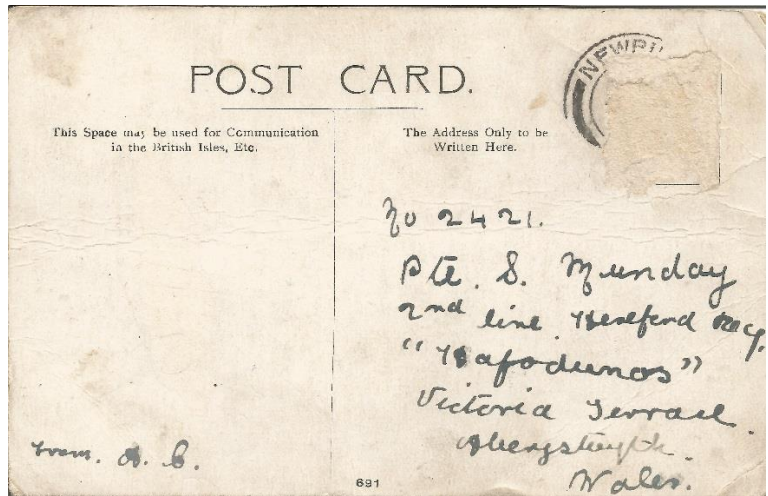 POST CARD.
NEWP
This Space may be used for Communication
in the British Isles, Etc.
The Address Only to be
Written Here.
No 2421.
Pte. S. Munday
2nd line Hereford Reg.
"Hafodunos"
Victoria Terrace.
Aberystwyth.
Wales.
From. A. C.
691